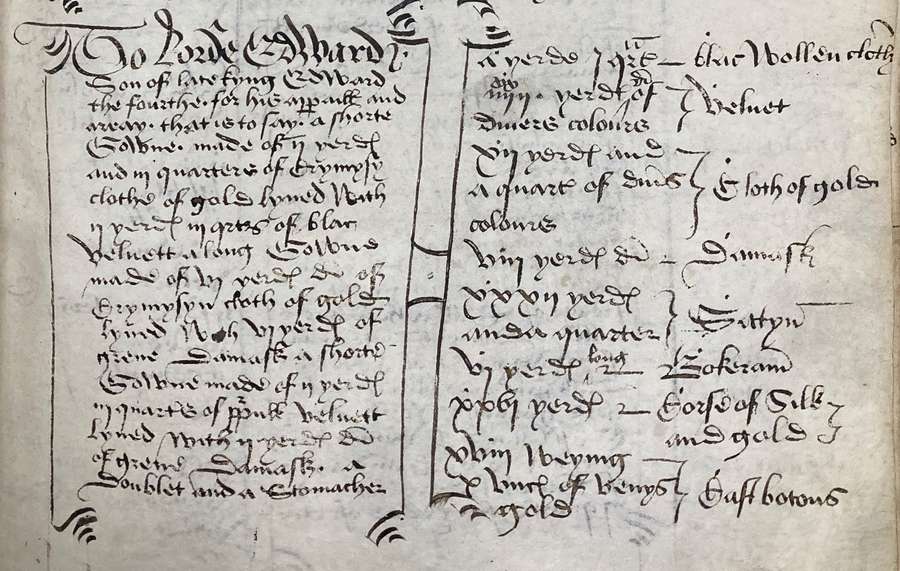 To Lorde Edward
Son of late kyng Edward
the fourthe. for his apparaill and
aray. that is to say. a shorte
Gowne. made of ij yerdes
and iij quarters of Crymysy
clothe of gold lyned with
ij yerdes iij qrts of blac
velvett a long Gowne
made of vj yerdes di of
Crymysyn cloth of gold
lyned with vj yerdes of
grene Damask a shorte
Gowne made of ij yerdes
iij quarters of purpull velvett
lyned with ij yerdes di
of grene Damask. a
doublet and a Stomacher
a yerde j qrt — blac Wollen cloth
yerdes of Velvet
divers colours
xij yerdes and
a quarter of divers Cloth of gold
colours
viij yerdes di — Damask
xxxij yerdes
and a quarter Sattyn
vj yerdes long Bokeram
xxvj yerdes — Corse of Silk
and gold
xviij weying
x unces of venys Cast botons
gold